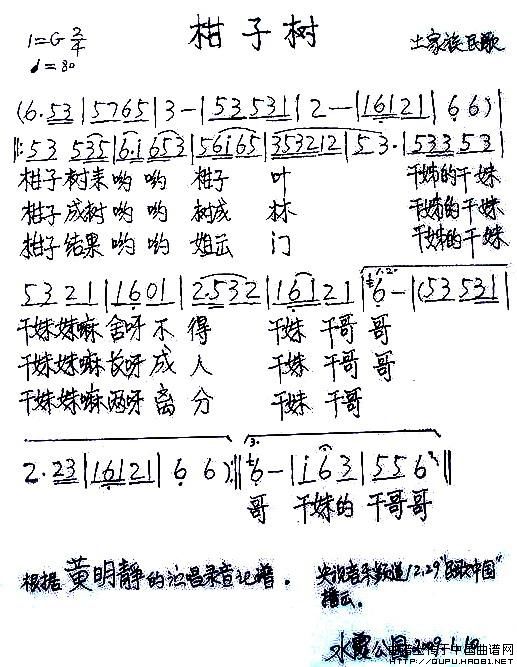 柑子树
1=G 2/4
土家族民歌
♩=80
(6.53|5765|3-|53531|2-|16121|66)|
|:53 535|6.i 653|56i65|353212|53.|53353|
柑子树来哟哟 柑子 叶 干妹的干妹
柑子成树哟哟 树成 林 干妹的干妹
柑子结果哟哟 姐出 门 干妹的干妹
5321|1601|2.532|16121|6-|(53531|
干妹妹嘛舍呀不得 干妹干哥哥
干妹妹嘛长呀成人 干妹干哥哥
干妹妹嘛两呀离分 干妹干哥
2.23|16121|66):|| 3. 6-|i63|556||
哥 干妹的 干哥哥
根据黄明静的演唱录音记谱。
央视音乐频道12.29"民歌中国"
播出。
水霞公园2009.1.10
中国曲谱网
HTTP://QUPU.HAO81.NET